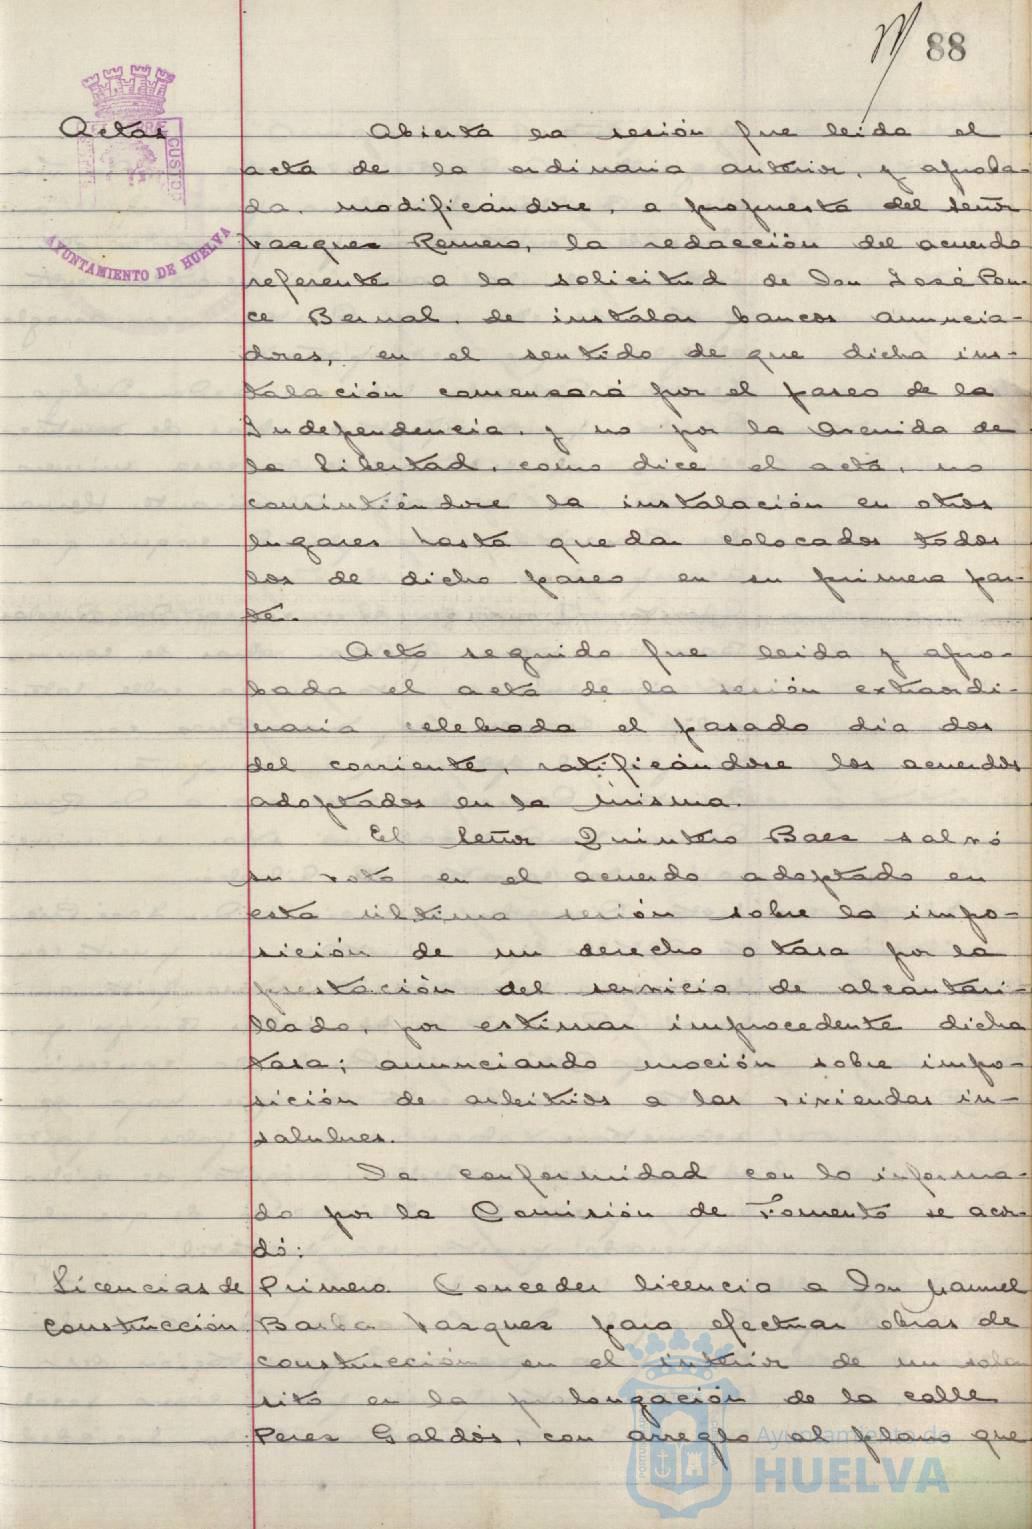 88
Actas
AYUNTAMIENTO DE HUELVA
Abierta la sesión fue leida el
acta de la ordinaria anterior, y aproba-
da, modificándose, a propuesta del Señor
Vazquez Romero, la redacción del acuerdo
referente a la solicitud de Don José Pon-
ce Bernal, de instalar bancos anuncia-
dores, en el sentido de que dicha ins-
talación comenzará por el paseo de la
Independencia, y no por la Avenida de
la Libertad, como dice el acta, no
consintiéndose la instalación en otros
lugares hasta quedar colocados todos
los de dicho paseo en su primera par-
te.
Acto seguido fue leida y apro-
bada el acta de la sesión extraordi-
naria celebrada el pasado dia dos
del corriente, ratificándose los acuerdos
adoptados en la misma.
El Señor Quintero Baez salvó
su voto en el acuerdo adoptado en
esta última sesión sobre la impo-
sición de un derecho o tasa por la
prestación del servicio de alcantari-
llado, por estimar improcedente dicha
tasa; anunciando moción sobre impo-
sición de arbitrios a las viviendas in-
salubres.
De conformidad con lo informa-
do por la Comisión de Fomento se acor-
dó:
Licencias de
construcción
Primero. Conceder licencia a Don Manuel
Barba Vazquez para efectuar obras de
construcción en el interior de un solar
sito en la prolongación de la calle
Perez Galdós, con arreglo al plano que
Ayuntamiento de
HUELVA